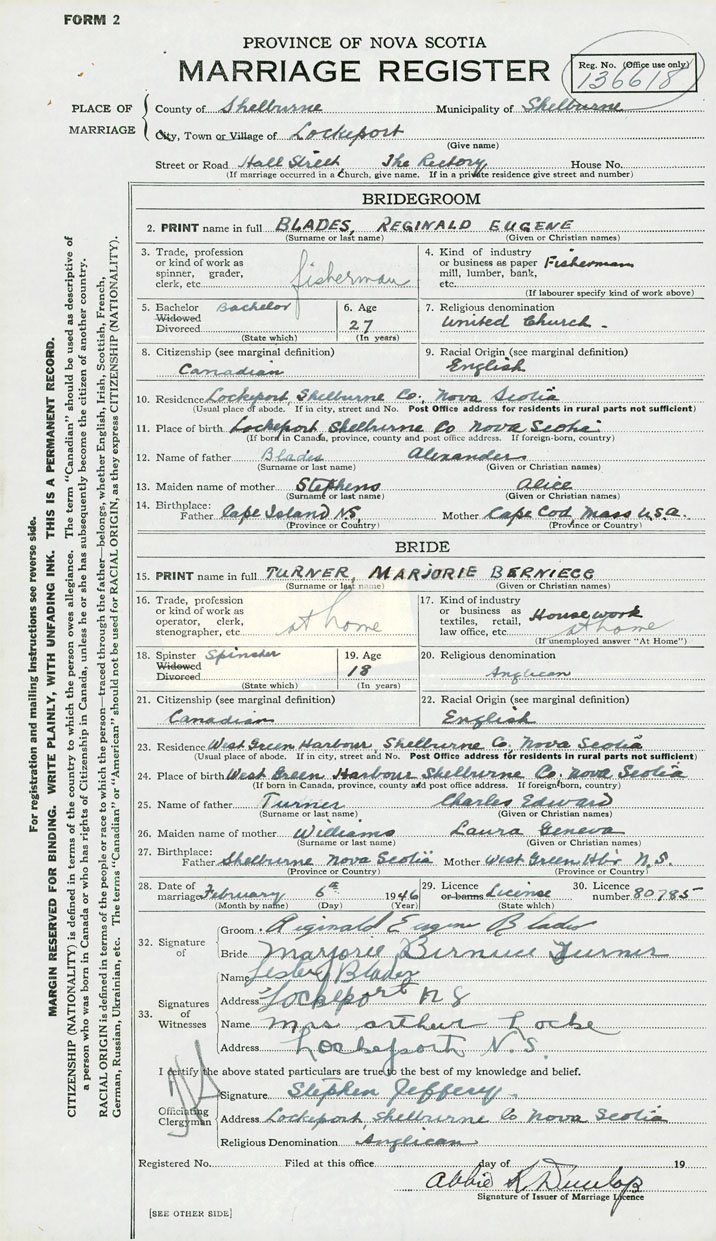 FORM 2
PROVINCE OF NOVA SCOTIA
MARRIAGE REGISTER
Reg. No. (Office use only)
136618
PLACE OF MARRIAGE
County of Shelburne Municipality of Shelburne
City, Town or Village of Lockeport
(Give name)
Street or Road Hall Street The Rectory House No.
(If marriage occurred in a Church, give name. If in a private residence give street and number)
BRIDEGROOM
2. PRINT name in full BLADES, REGINALD EUGENE
(Surname or last name) (Given or Christian names)
3. Trade, profession or kind of work as spinner, grader, clerk, etc. fisherman
4. Kind of industry or business as paper mill, lumber, bank, etc. Fisherman
(If labourer specify kind of work above)
5. Bachelor Widowed Divorced Bachelor
(State which)
6. Age 27
(In years)
7. Religious denomination
United Church.
8. Citizenship (see marginal definition)
Canadian
9. Racial Origin (see marginal definition)
English
10. Residence Lockeport, Shelburne Co., Nova Scotia
(Usual place of abode. If in city, street and No. Post Office address for residents in rural parts not sufficient)
11. Place of birth Lockeport Shelburne Co Nova Scotia
(If born in Canada, province, county and post office address. If foreign-born, country)
12. Name of father Blades Alexander
(Surname or last name) (Given or Christian names)
13. Maiden name of mother Stephens Alice
(Surname or last name) (Given or Christian names)
14. Birthplace: Father Cape Island N.S. Mother Cape Cod Mass U.S.a.
(Province or Country) (Province or Country)
BRIDE
15. PRINT name in full TURNER, MARJORIE BERNIECE
(Surname or last name) (Given or Christian names)
16. Trade, profession or kind of work as operator, clerk, stenographer, etc. at home
17. Kind of industry or business as textiles, retail, law office, etc. Housework at home
(If unemployed answer "At Home")
18. Spinster Widowed Divorced Spinster
(State which)
19. Age 18
(In years)
20. Religious denomination
Anglican
21. Citizenship (see marginal definition)
Canadian
22. Racial Origin (see marginal definition)
English
23. Residence West Green Harbour, Shelburne Co, Nova Scotia
(Usual place of abode. If in city, street and No. Post Office address for residents in rural parts not sufficient)
24. Place of birth West Green Harbour Shelburne Co. Nova Scotia
(If born in Canada, province, county and post office address. If foreign-born, country)
25. Name of father Turner Charles Edward
(Surname or last name) (Given or Christian names)
26. Maiden name of mother Williams Laura Geneva
(Surname or last name) (Given or Christian names)
27. Birthplace: Father Shelburne Nova Scotia Mother West Green Hbr N.S.
(Province or Country) (Province or Country)
28. Date of marriage February 6th 1946
(Month by name) (Day) (Year)
29. Licence or banns License
(State which)
30. Licence number 80785
32. Signature of
Groom Reginald Eugene Blades
Bride Marjorie Bernice Turner
33. Signatures of Witnesses
Name Lesley Blades
Address Lockeport N S
Name Mrs arthur Locke
Address Lockeport N.S.
I certify the above stated particulars are true to the best of my knowledge and belief.
Officiating Clergyman
Signature Stephen Jeffery.
Address Lockeport, Shelburne Co Nova Scotia
Religious Denomination Anglican
Registered No. Filed at this office day of 19
Abbie K Dunlop
Signature of Issuer of Marriage Licence
[SEE OTHER SIDE]
For registration and mailing instructions see reverse side.
MARGIN RESERVED FOR BINDING. WRITE PLAINLY, WITH UNFADING INK. THIS IS A PERMANENT RECORD.
CITIZENSHIP (NATIONALITY) is defined in terms of the country to which the person owes allegiance. The term "Canadian" should be used as descriptive of
a person who was born in Canada or who has rights of Citizenship in Canada, unless he or she has subsequently become the citizen of another country.
RACIAL ORIGIN is defined in terms of the people or race to which the person—traced through the father—belongs, whether English, Irish, Scottish, French,
German, Russian, Ukrainian, etc. The terms "Canadian" or "American" should not be used for RACIAL ORIGIN, as they express CITIZENSHIP (NATIONALITY).